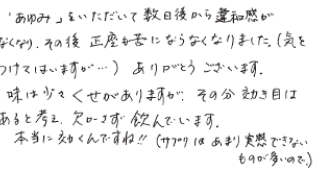 「あゆみ」をいただいて数日後から違和感が
なくなり、その後 正座も苦にならなくなりました。(気を
つけてはいますが…) ありがとうございます。
味は少々くせがありますが、その分効き目は
あると考え、欠かさず飲んでいます。
本当に効くんですね!! (サプリはあまり実感できない
ものが多いので。)